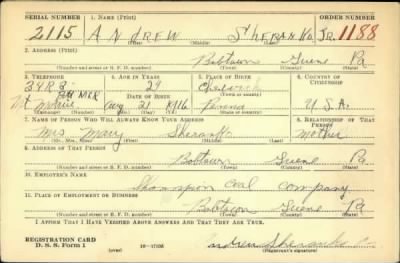 SERIAL NUMBER 1. NAME (Print) ORDER NUMBER
2115 ANDREW SHERANKO JR. 1188
(First) (Middle) (Last)
2. ADDRESS (Print)
Bobtown Greene Pa
(Number and street or R. F. D. number) (Town) (County) (State)
3. TELEPHONE 4. AGE IN YEARS 5. PLACE OF BIRTH 6. COUNTRY OF CITIZENSHIP
24
DATE OF BIRTH (Town or county)
Mt Morris Aug 21 1916 Penna U.S.A.
7. NAME OF PERSON WHO WILL ALWAYS KNOW YOUR ADDRESS 8. RELATIONSHIP OF THAT PERSON
Mrs Mary Sheranko Mother
(Mr., Mrs., Miss) (First) (Middle) (Last)
9. ADDRESS OF THAT PERSON
Bobtown Greene Pa
(Number and street or R. F. D. number) (Town) (County) (State)
10. EMPLOYER'S NAME
Shannopin Coal Company
11. PLACE OF EMPLOYMENT OR BUSINESS
Bobtown Greene Pa
(Number and street or R. F. D. number) (Town) (County) (State)
I AFFIRM THAT I HAVE VERIFIED ABOVE ANSWERS AND THAT THEY ARE TRUE.
REGISTRATION CARD
D. S. S. Form 1 (over) 16—17105 Andrew Sheranko
(Registrant's signature)